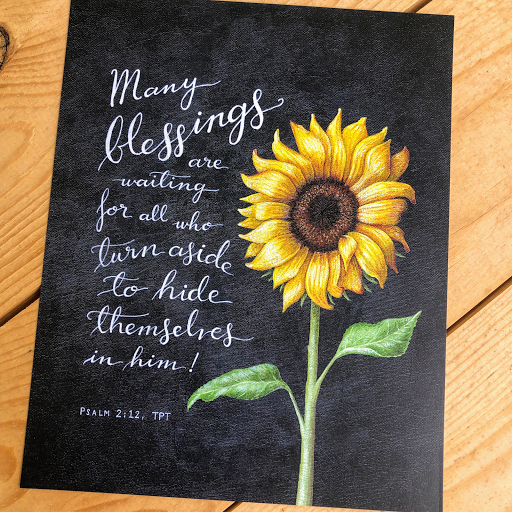 Many
blessings
are
waiting
for all who
turn aside
to hide
themselves
in him!
PSALM 2:12, TPT